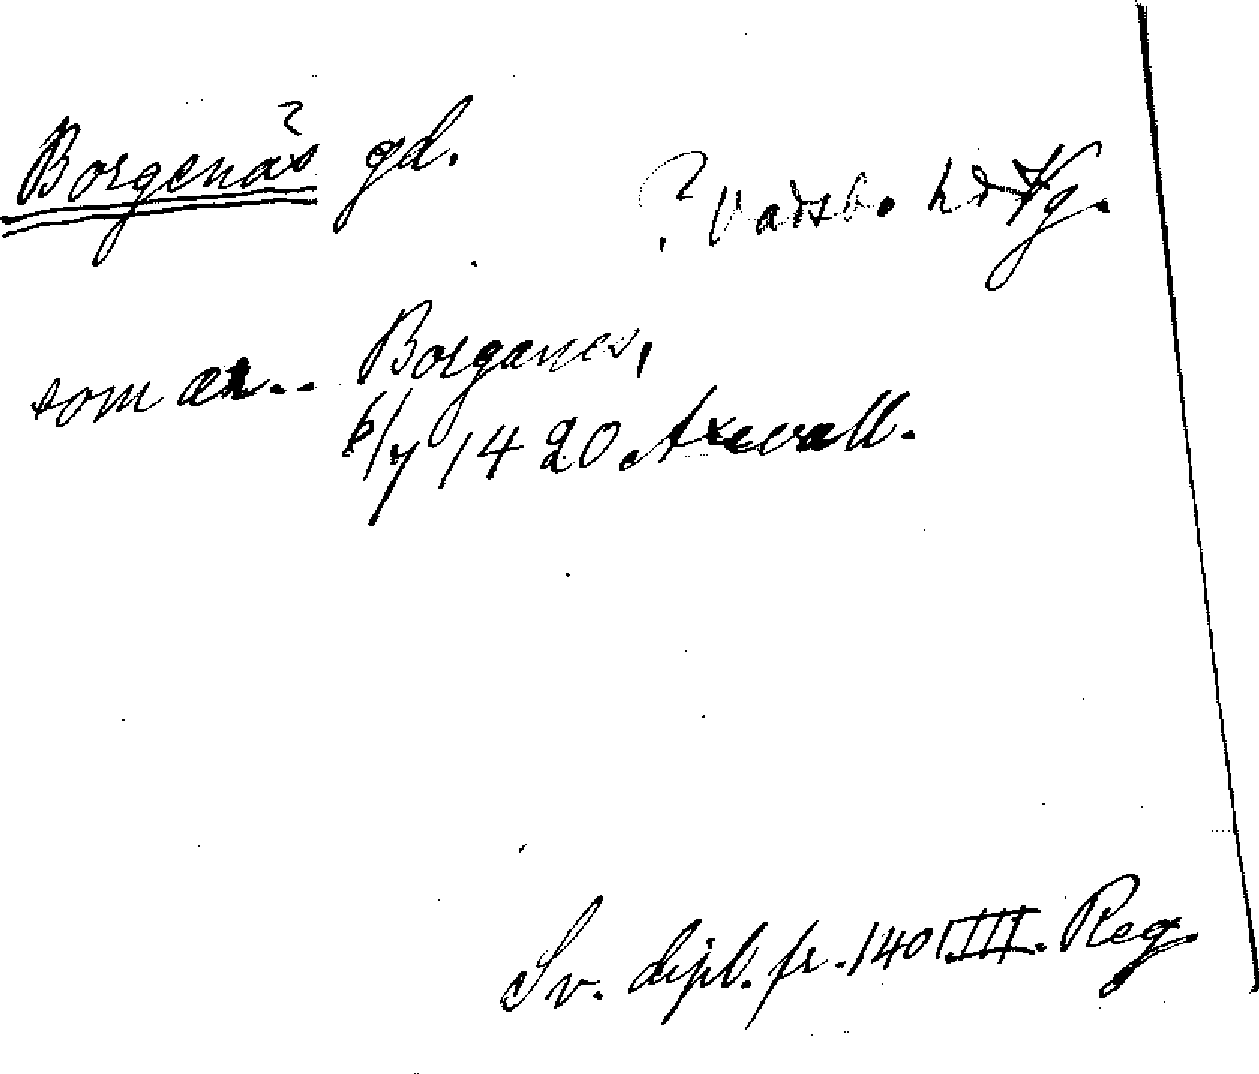 Borgenäs gd.
? Vadsb. hd Vg.
som ær.. Borganes,
6/7 1420 Axevall.
Sv. dipl. fr. 1401 III. Reg.